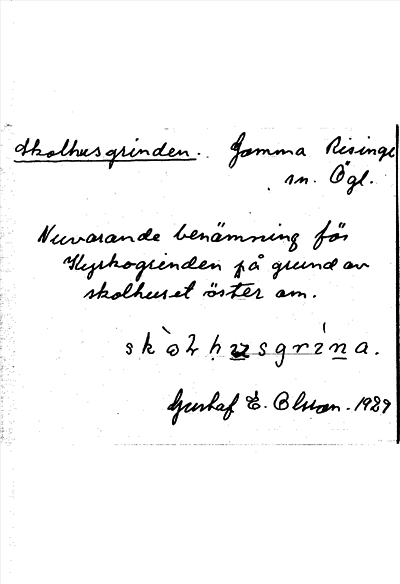 Skolhusgrinden. Gamma Risinge
sn. Ögl.
Nuvarande benämning för
Kyrkogrinden på grund av
skolhuset öster om.
skòlhusgrína.
Gustaf E. Olsson. 1929